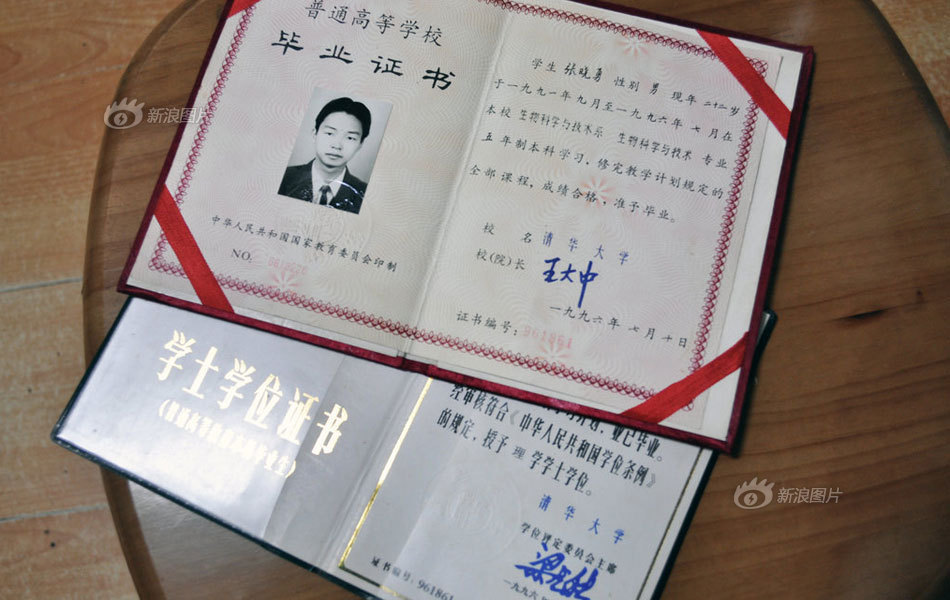 普通高等学校
毕业证书
中华人民共和国国家教育委员会印制
NO.
学生 张晓勇 性别 男 现年 二十二 岁
于一九九一年 九 月至一九九六年 七 月在
本校 生物科学与技术系 生物科学与技术 专业
五 年制本科学习，修完教学计划规定的
全部课程，成绩合格，准予毕业。
校 名 清华大学
校(院)长 王大中
一九九六年 七 月 十 日
证书编号：961861
学士学位证书
业已毕业。
经审核符合《中华人民共和国学位条例》
的规定，授予 理 学学士学位。
清华大学
学位评定委员会主席
一九九六
证书编号：961861
新浪图片
新浪图片